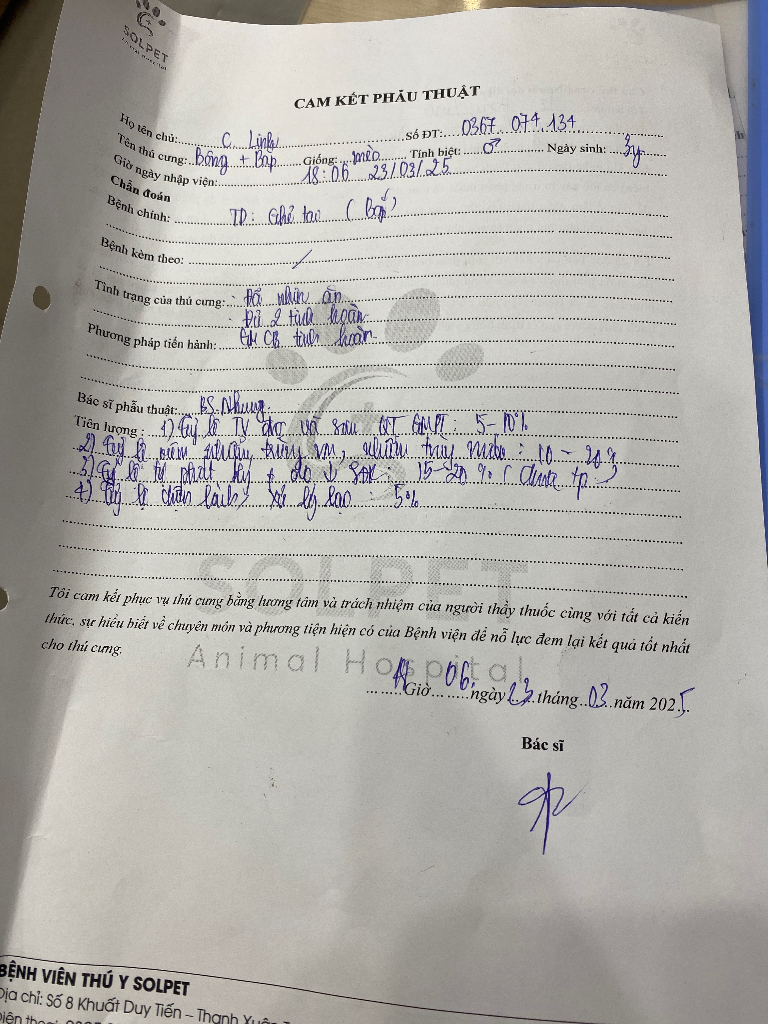 SOLPET
Animal Hospital
CAM KẾT PHẪU THUẬT
Họ tên chủ: C. Linh Số ĐT: 0367 074.134
Tên thú cưng: Bông + Bắp Giống: mèo Tính biệt: ♂ Ngày sinh: 3y
Giờ ngày nhập viện: 18:06 23/03/25
Chẩn đoán
Bệnh chính: TD: Ghẻ tai (Bắp)
Bệnh kèm theo:
Tình trạng của thú cưng: - Đã nhịn ăn
- Đủ 2 tinh hoàn
Phương pháp tiến hành: tinh hoàn
Bác sĩ phẫu thuật: BS. Nhung
Tiên lượng: 1) Tỷ lệ TV và sau QT GMPT: 5-10%
2) Tỷ lệ viêm nhiễm trùng vm, nhiễm trùng máu: 10-20%
3) Tỷ lệ tự phát do ↓ SĐK: 15-20% (chưa tp)
4) Tỷ lệ chậm lành, xử lý lại: 5%
SOLPET
Animal Hospital
Tôi cam kết phục vụ thú cưng bằng lương tâm và trách nhiệm của người thầy thuốc cùng với tất cả kiến
thức, sự hiểu biết về chuyên môn và phương tiện hiện có của Bệnh viện để nỗ lực đem lại kết quả tốt nhất
cho thú cưng.
Giờ 06, ngày 23 tháng 03 năm 2025
Bác sĩ
BỆNH VIỆN THÚ Y SOLPET
Địa chỉ: Số 8 Khuất Duy Tiến – Thanh Xuân
Điện thoại: